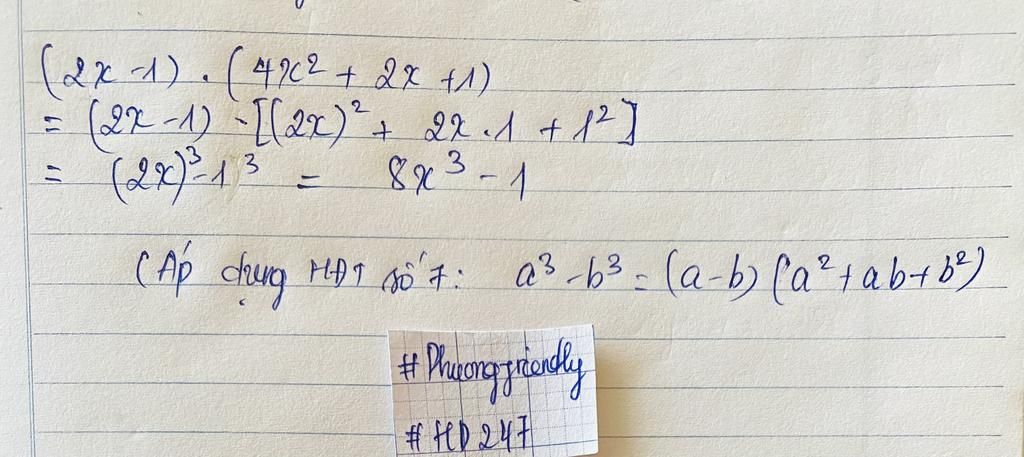 (2x - 1) . (4x² + 2x + 1)
= (2x - 1) . [(2x)² + 2x . 1 + 1²]
= (2x)³ - 1³ = 8x³ - 1
(Áp dụng HĐT số 7: a³ - b³ = (a - b) (a² + ab + b²)
#Phuongfriendly
#HD247